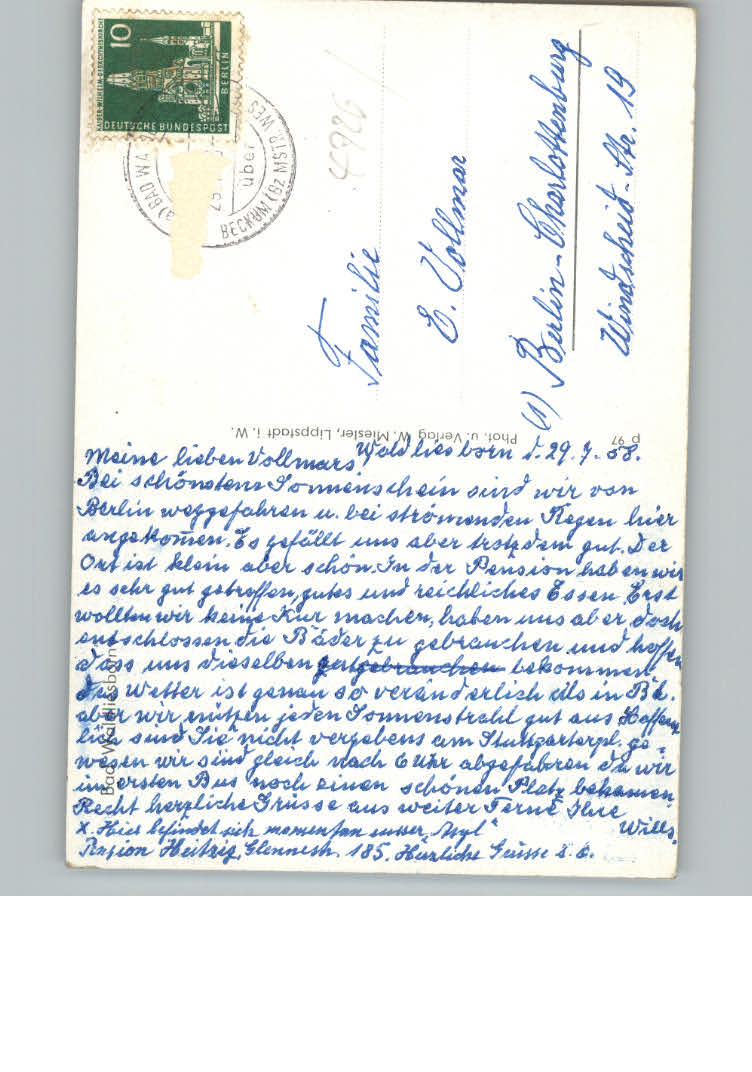 10
KAISER-WILHELM-GEDÄCHTNISKIRCHE
BERLIN
DEUTSCHE BUNDESPOST
BAD WA
über
BECKUM (BZ MSTR WES
4926
Familie
E. Vollmar
(1) Berlin-Charlottenburg
Windscheid-Str. 19
Phot. u. Verlag W. Miesler, Lippstadt i. W.
P 97
Bad Waldliesborn
Waldliesborn d. 29.7.58.
Meine lieben Vollmars!
Bei schönstem Sonnenschein sind wir von
Berlin weggefahren u. bei strömenden Regen hier
angekom̄en. Es gefällt uns aber trotzdem gut. Der
Ort ist klein aber schön. In der Pension haben wir
es sehr gut getroffen, gutes und reichliches Essen. Erst
wollten wir keine Kur machen, haben uns aber doch
entschlossen die Bäder zu gebrauchen und hoffen
dass uns dieselben gut gebrauchen bekommen
Das Wetter ist genau so veränderlich als in Bln.
aber wir nützen jeden Sonnenstrahl gut aus. Hoffent-
lich sind Sie nicht vergebens am Stuttgarterpl. ge-
wesen wir sind gleich nach 6 Uhr abgefahren da wir
im ersten Bus noch einen schönen Platz bekamen
Recht herzliche Grüsse aus weiter Ferne Ihre
Wills.
x. Hier befindet sich momentan unser "Asyl"
Pension Heitzig, Glennestr. 185. Herzliche Grüsse